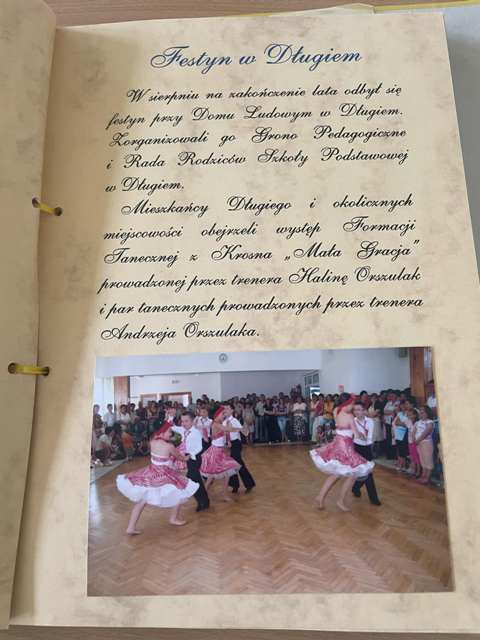 Festyn w Długiem
W sierpniu na zakończenie lata odbył się
festyn przy Domu Ludowym w Długiem.
Zorganizowali go Grono Pedagogiczne
i Rada Rodziców Szkoły Podstawowej
w Długiem.
Mieszkańcy Długiego i okolicznych
miejscowości obejrzeli występ Formacji
Tanecznej z Krosna „Mała Gracja”
prowadzonej przez trenera Halinę Orszulak
i par tanecznych prowadzonych przez trenera
Andrzeja Orszulaka.